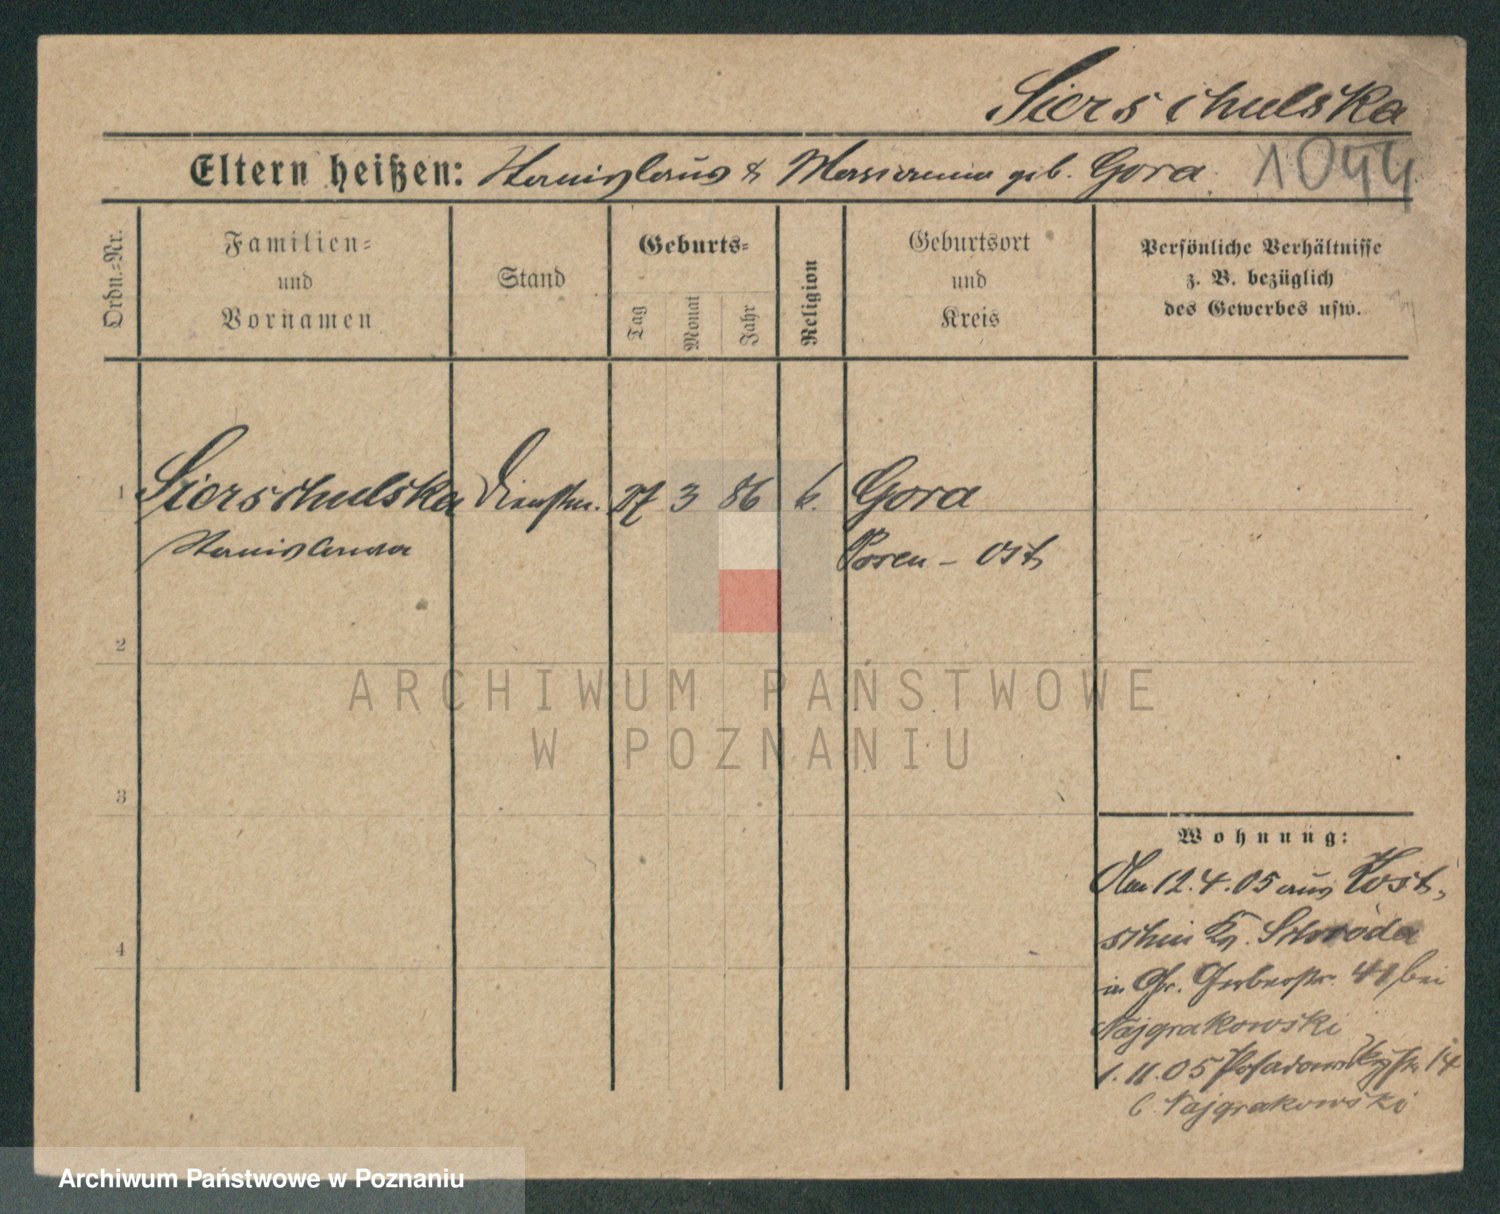 Sierschulska
Eltern heißen: Stanislaus & Marianna geb. Gora
1044
Ordn.=Nr.
Familien=
und
Vornamen
Stand
Geburts=
Tag
Monat
Jahr
Religion
Geburtsort
und
Kreis
Persönliche Verhältnisse
z. B. bezüglich
des Gewerbes usw.
1
Sierschulska Dienstm. 27 3 86 k. Gora
Stanislawa Posen - Ost
2
ARCHIWUM PAŃSTWOWE
W POZNANIU
3
Wohnung:
12.4.05 aus Kost-
schin Kr. Schroda
in Gr. Gerberstr. 41 bei
Najgrakowski
4
1.11.05 Posadowskystr. 14
b. Najgrakowski
Archiwum Państwowe w Poznaniu